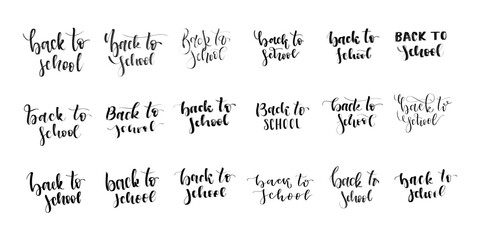 back to
school
back to
school
Back to
School
back to
school
back to
school
BACK TO
school
back to
school
Back to
school
back to
school
Back to
SCHOOL
back to
school
back to
school
back to
school
back to
school
back to
school
back to
school
back to
school
back to
school